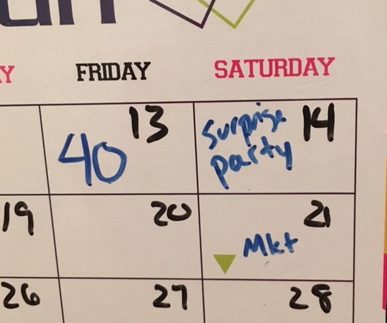 Y FRIDAY SATURDAY
13 14
40 surprise
party
19 20 21
Mkt
26 27 28